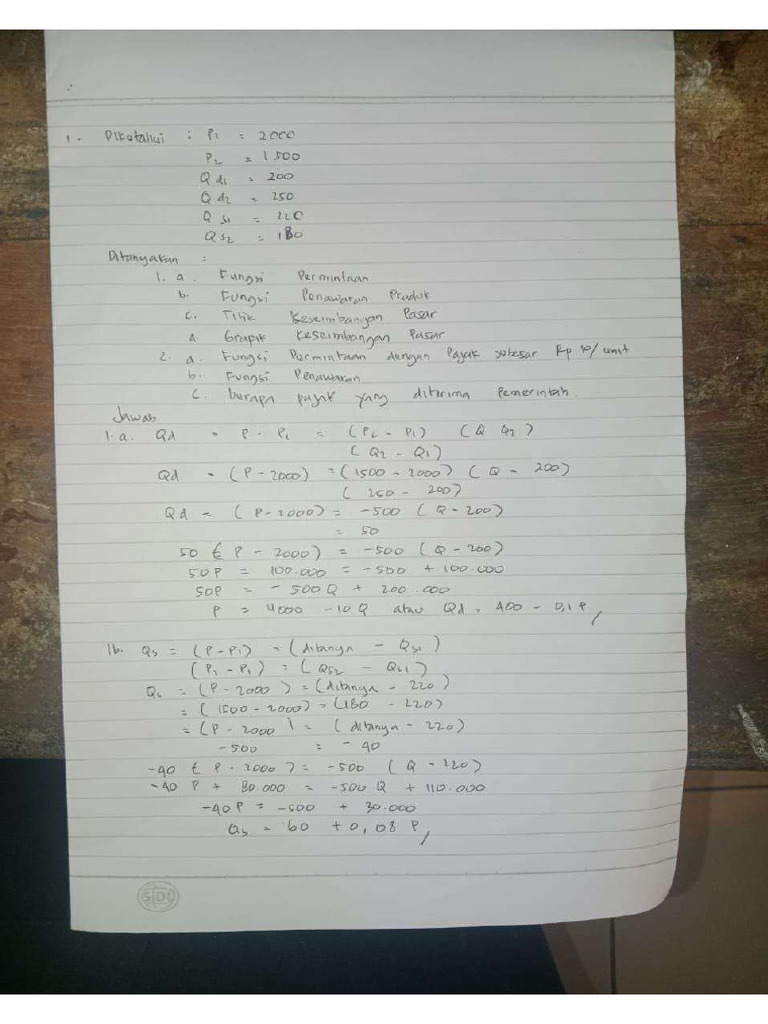 1. Diketahui : P1 = 2000
P2 = 1500
Qd1 = 200
Qd2 = 250
QS1 = 220
QS2 = 180
Ditanyakan :
1. a. Fungsi Permintaan
b. Fungsi Penawaran Produk
c. Titik Keseimbangan Pasar
d. Grapik Keseimbangan Pasar
2. a. Fungsi Permintaan dengan Pajak sebesar Rp 10/unit
b. Fungsi Penawaran
c. berapa pajak yang diterima Pemerintah.
Jawab
1.a. Qd = P - P1 = (P2 - P1) (Q Q2)
(Q2 - Q1)
Qd = (P - 2000) = (1500 - 2000) (Q - 200)
(250 - 200)
Qd = (P - 2000) = -500 (Q - 200)
= 50
50 (P - 2000) = -500 (Q - 200)
50P = 100.000 = -500 + 100.000
50P = -500Q + 200.000
P = 4000 - 10Q atau Qd = 400 - 0,1 P
1b. Qs = (P - P1) = (ditanya - QS1)
(P2 - P1) = (QS2 - QS1)
Qs = (P - 2000) = (ditanya - 220)
= (1500 - 2000) = (180 - 220)
= (P - 2000) = (ditanya - 220)
-500 = -40
-40 (P - 2000) = -500 (Q - 220)
-40 P + 80.000 = -500 Q + 110.000
-40P = -500 + 30.000
Qs = 60 + 0,08 P
SIDU